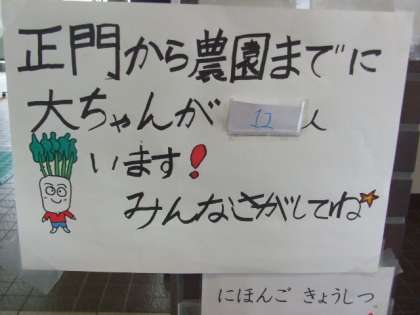 正門から農園までに
大ちゃんが 12 人
います!
みんなさがしてね
にほんご きょうしつ